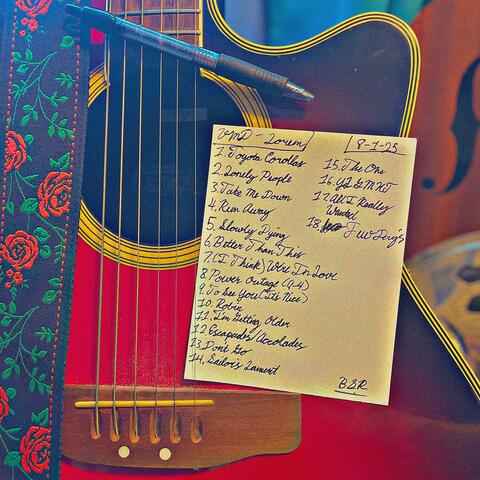 VMD - Lorem
8-1-25
1. Toyota Corollas
2. Lonely People
3. Take Me Down
4. Run Away
5. Slowly Dying
6. Better Than This
7. (I Think) We're In Love
8. Power Outage
9. To See You (It's Nice)
10. Robin
11. I'm Getting Older
12. Escapades/Accolades
13. Don't Go
14. Sailor's Lament
15. The One
16. YGGMHT
17. All I Really
Wanted
18.
BSR